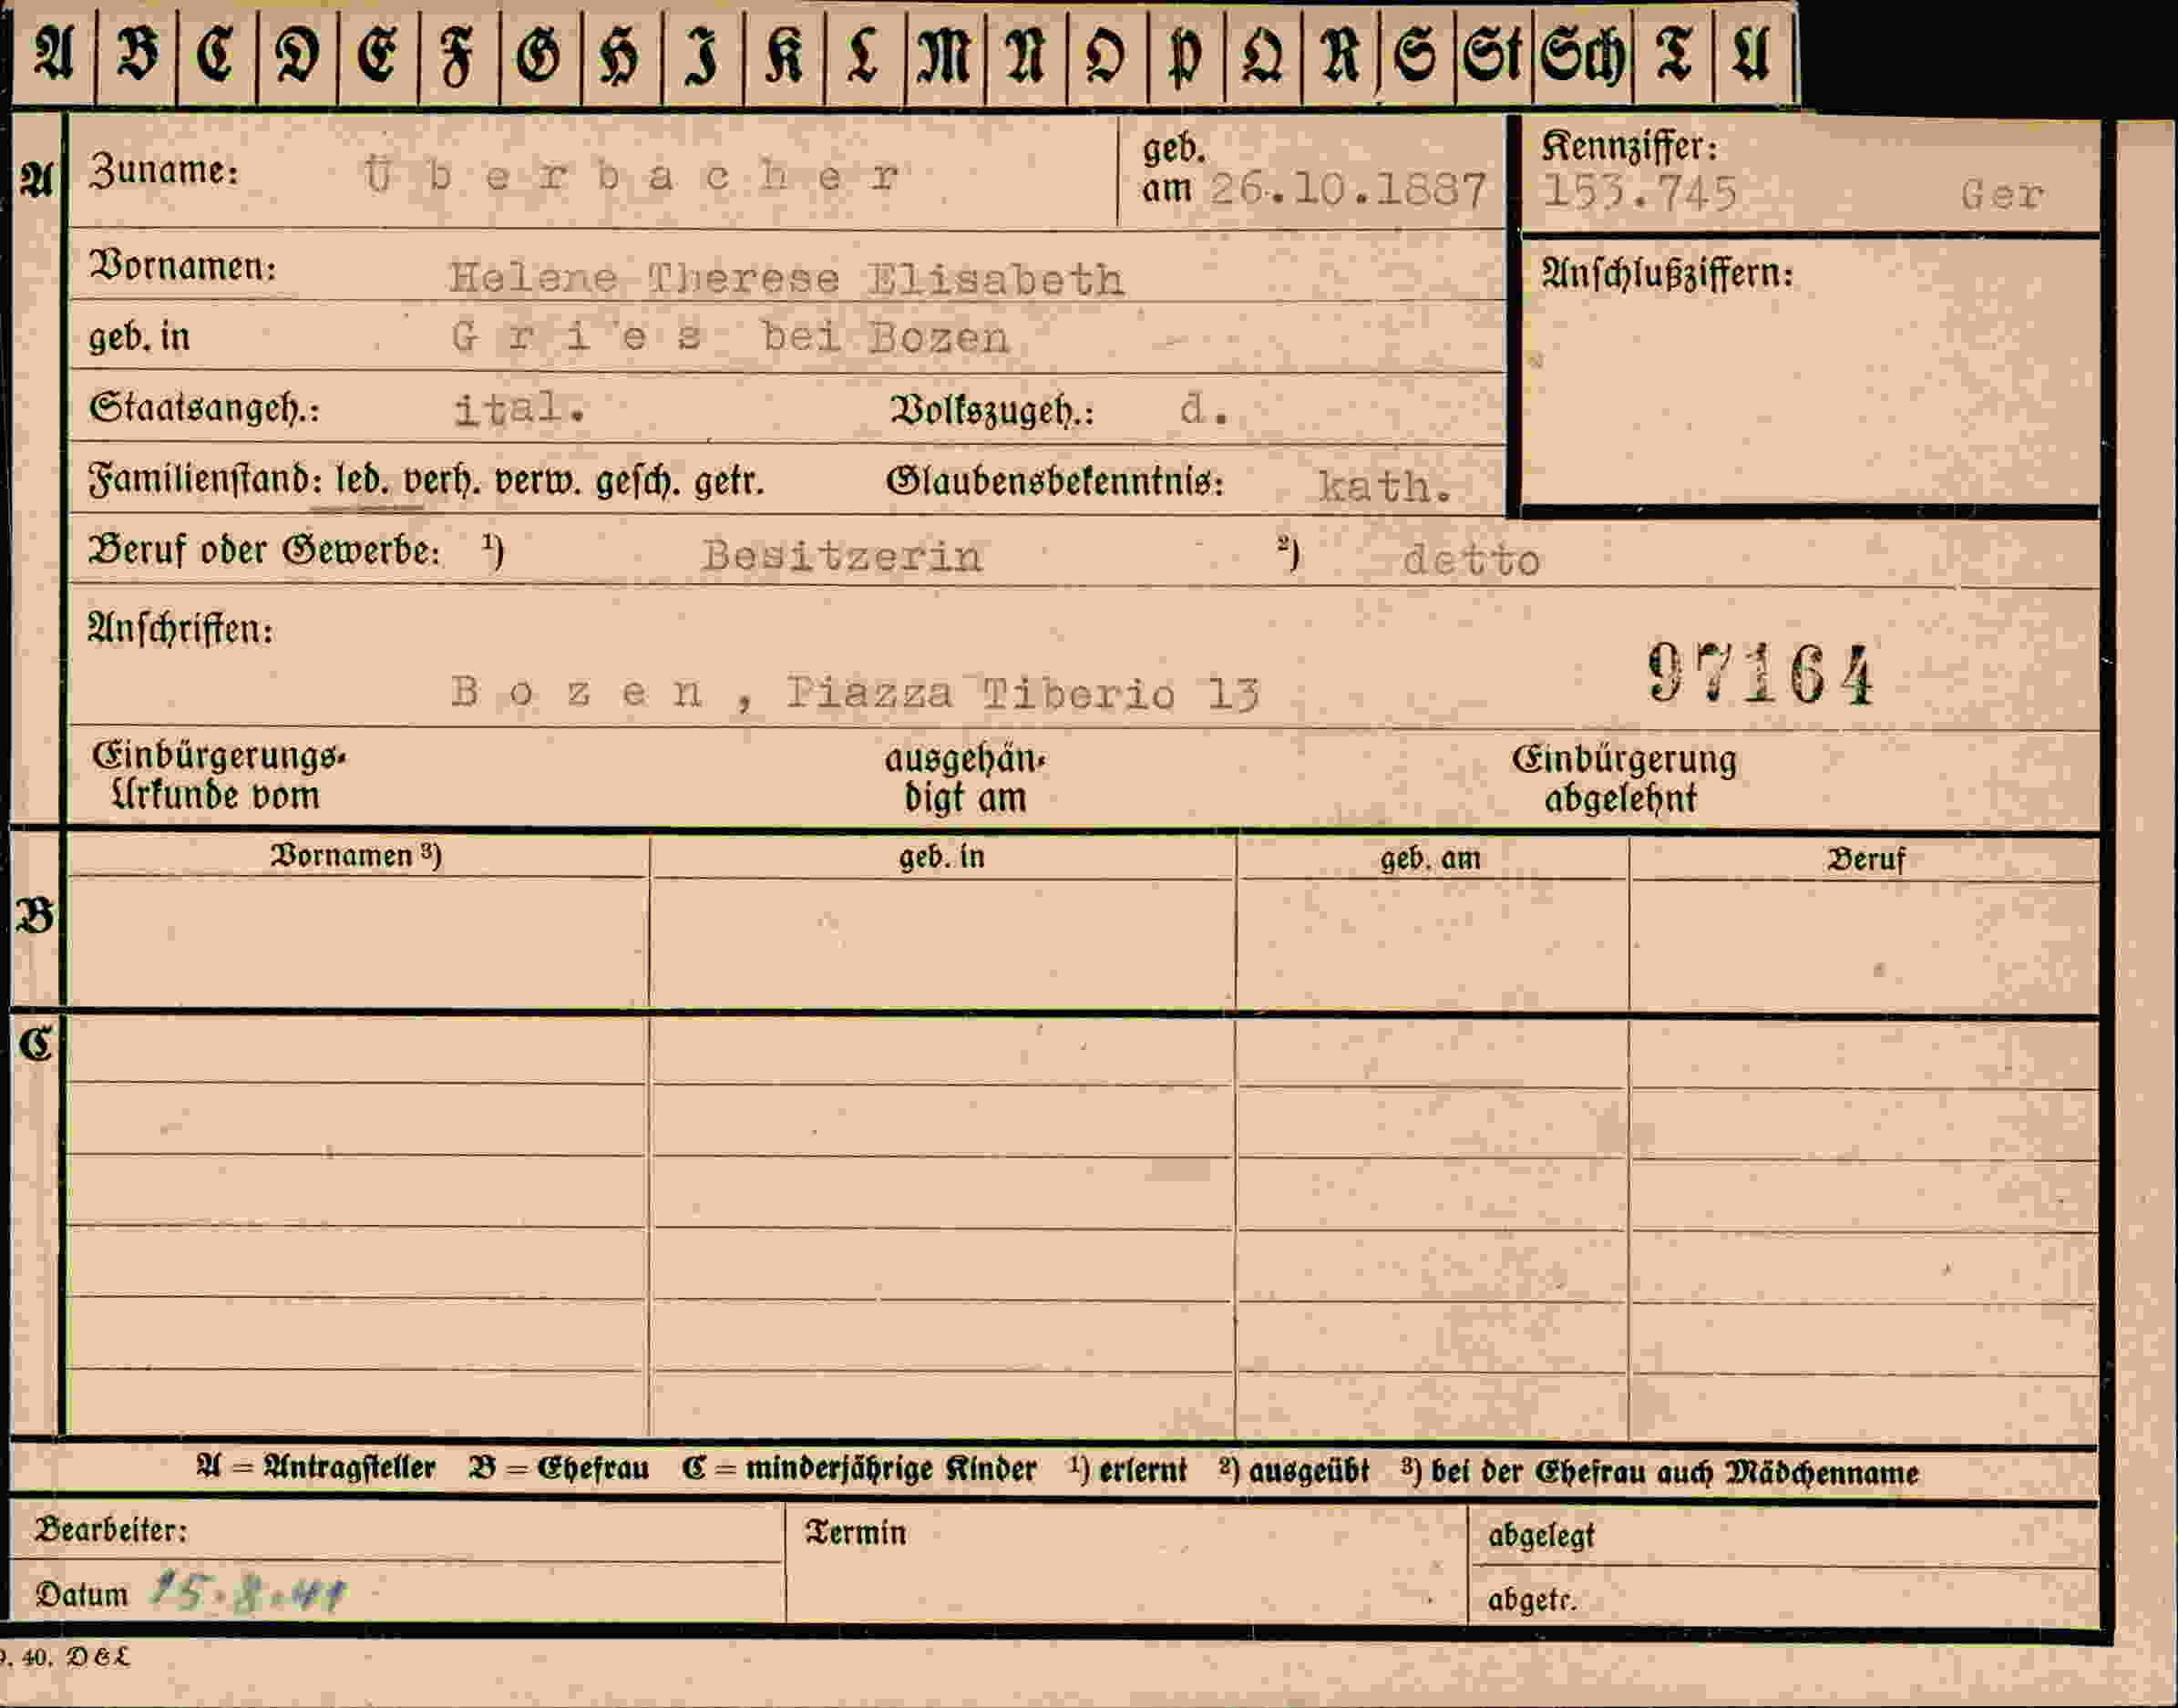 A B C D E F G H I K L M N O P Q R S St Sch T U
A Zuname: Überbacher geb. am 26.10.1887 Kennziffer: 153.745 Ger
Vornamen: Helene Therese Elisabeth Anschlußziffern:
geb. in Gries bei Bozen
Staatsangeh.: ital. Volkszugeh.: d.
Familienstand: led. verh. verw. gesch. getr. Glaubensbekenntnis: kath.
Beruf oder Gewerbe: 1) Besitzerin 2) detto
Anschriften:
Bozen, Piazza Tiberio 13 97164
Einbürgerungs- ausgehän- Einbürgerung
Urkunde vom digt am abgelehnt
Vornamen 3) geb. in geb. am Beruf
B
C
A = Antragsteller B = Ehefrau C = minderjährige Kinder 1) erlernt 2) ausgeübt 3) bei der Ehefrau auch Mädchenname
Bearbeiter: Termin abgelegt
Datum 15.8.41 abgetr.
40. D&L